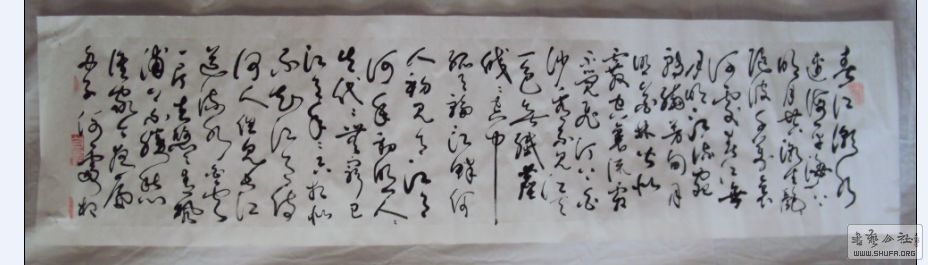 春江潮水
連海平海上
明月共潮生灩
隨波千萬里
何處春江無
月明江流宛
轉繞芳甸月
照花林皆似
霰空裏流霜
不覺飛汀上白
沙看不見江天
一色無纖塵
皎々空中
孤月輪江畔何
人初見月江月
何年初照人人
生代々無窮已
江月年々只相似
不知江月待
何人但見長江
送流水白雲
一片去悠々青楓
浦上不勝愁
誰家今夜扁
舟子何處相
WWW.SHUFA.ORG